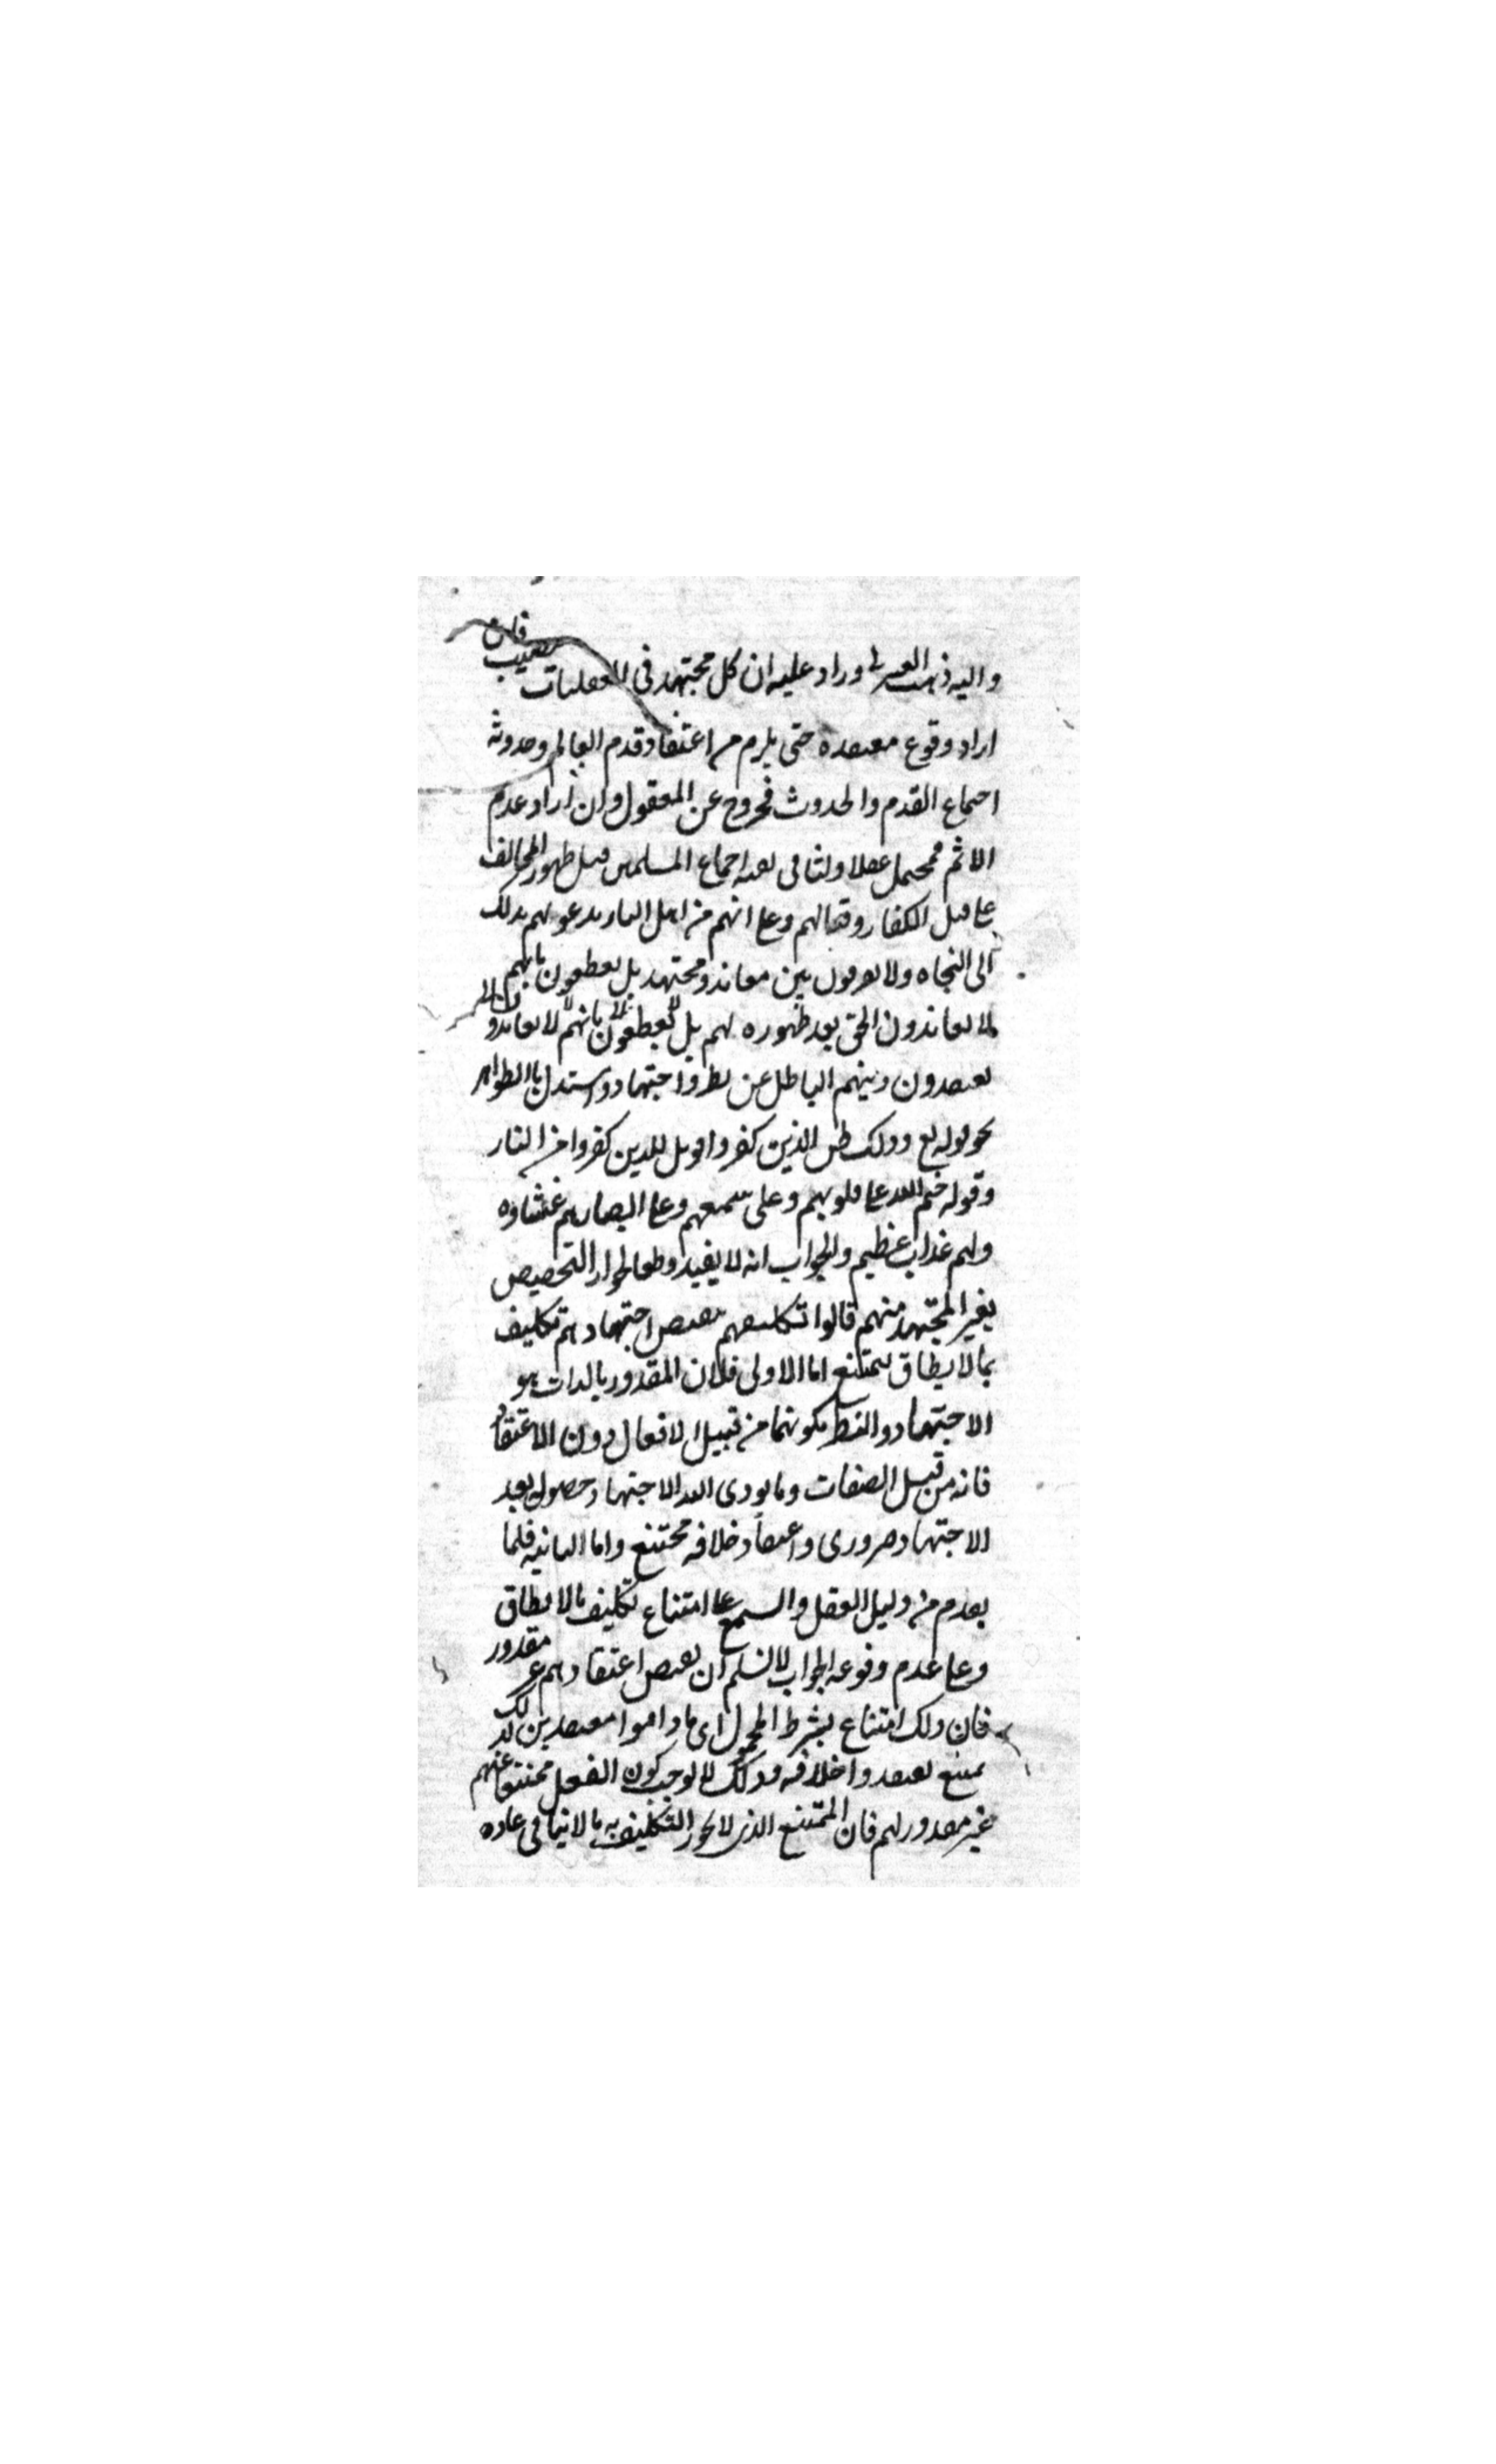 واليه ذهب العنبري وزاد عليه ان كل مجتهد في العقليات مصيب فان
اراد وقوع معتقده حتى يلزم من اعتقاد قدم العالم وحدوثه
اجتماع القدم والحدوث فخروج عن المعقول وان اراد عدم
الاثم فمحتمل عقلا ولنا في نفيه اجماع المسلمين قبل ظهور المخالف
على قتل الكفار وقتالهم وعلى انهم من اهل النار يدعونهم بذلك
الى النجاه ولا يفرقون بين معاند ومجتهد بل يقطعون بانهم
لا يعاندون الحق بعد ظهوره لهم بل يقطعون بانهم لا يعاندون
يعتقدون دينهم الباطل عن نظر واجتهاد واستدل بالظواهر
نحو قوله تع وذلك ظن الذين كفروا فويل للذين كفروا من النار
وقوله ختم الله على قلوبهم وعلى سمعهم وعلى ابصارهم غشاوه
ولهم عذاب عظيم والجواب انه لا يفيد قطعا لجواز التخصيص
بغير المجتهد منهم قالوا تكليفهم بنقيض اجتهادهم تكليف
بما لا يطاق يمتنع اما الاولى فلان المقدور بالذات هو
الاجتهاد والنظر لكونهما من قبيل الافعال دون الاعتقاد
فانه من قبيل الصفات وما يودى اليه الاجتهاد حصوله بعد
الاجتهاد ضرورى واعتقاد خلافه ممتنع واما الثانيه فلما
يقدم من دليل العقل والسمع على امتناع تكليف ما لا يطاق
وعلى عدم وقوعه الجواب لا نسلم ان نقيض اعتقادهم غير مقدور
فان ذلك امتناع بشرط المحمول اى ما داموا معتقدين لذلك
يمتنع يعتقدوا خلافه وذلك لا يوجب كون الفعل ممتنعا عنهم
غير مقدور لهم فان الممتنع الذى لا يجوز التكليف به ما لا يتاتى عاده